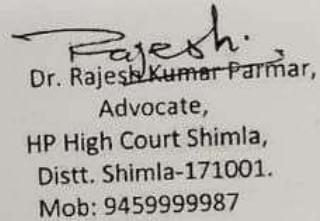 Rajesh.
Dr. Rajesh Kumar Parmar,
Advocate,
HP High Court Shimla,
Distt. Shimla-171001.
Mob: 9459999987